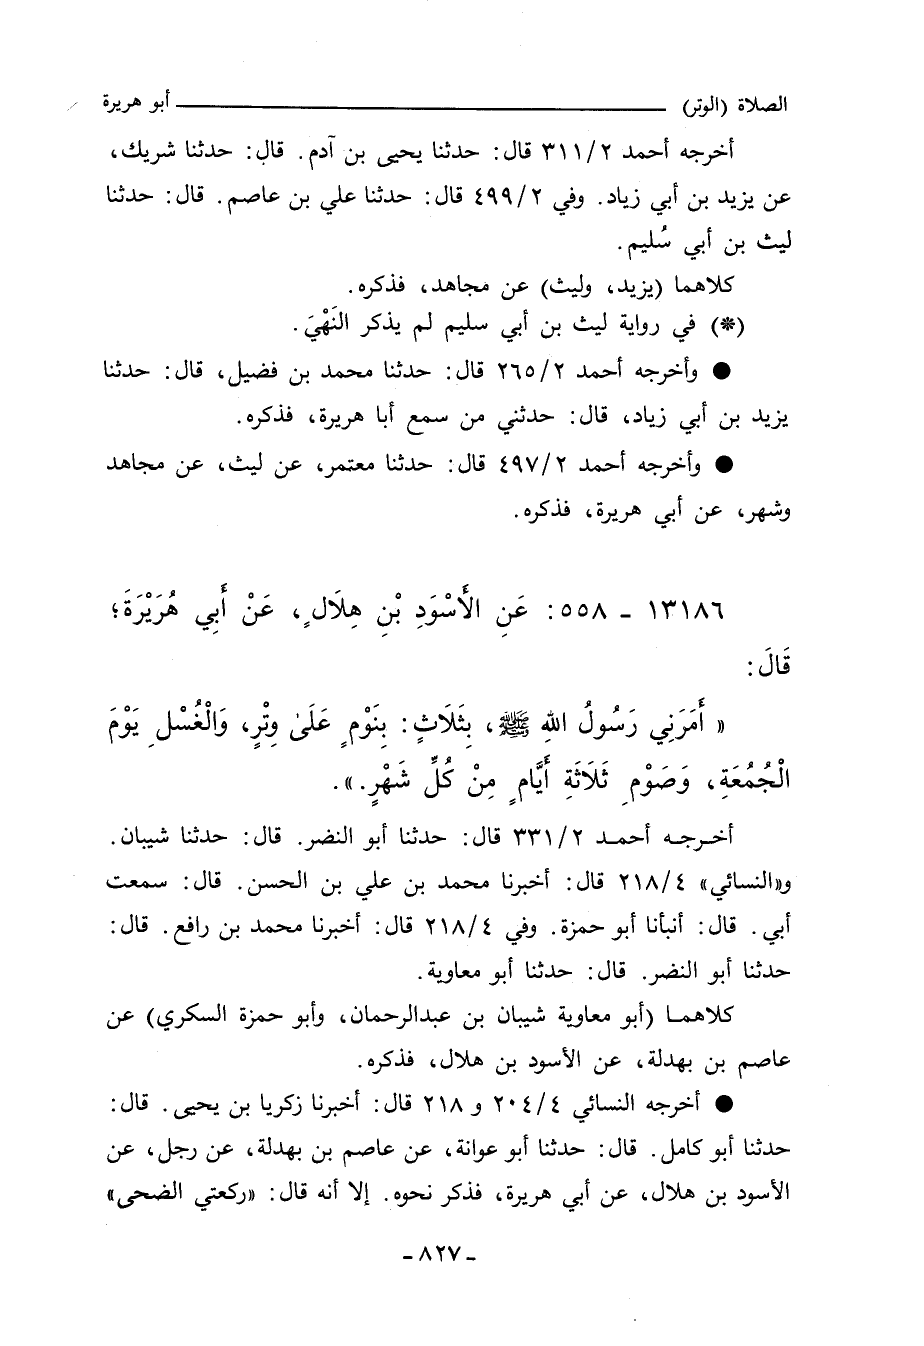 الصلاة (الوتر) ــــــــــــــــــــ أبو هريرة
أخرجه أحمد ٣١١/٢ قال: حدثنا يحيى بن آدم. قال: حدثنا شريك،
عن يزيد بن أبي زياد. وفي ٤٩٩/٢ قال: حدثنا علي بن عاصم. قال: حدثنا
ليث بن أبي سُليم.
كلاهما (يزيد، وليث) عن مجاهد، فذكره.
(*) في رواية ليث بن أبي سليم لم يذكر النَهْيَ.
● وأخرجه أحمد ٢٦٥/٢ قال: حدثنا محمد بن فضيل، قال: حدثنا
يزيد بن أبي زياد، قال: حدثني من سمع أبا هريرة، فذكره.
● وأخرجه أحمد ٤٩٧/٢ قال: حدثنا معتمر، عن ليث، عن مجاهد
وشهر، عن أبي هريرة، فذكره.
١٣١٨٦ - ٥٥٨: عَنِ الأَسْوَدِ بْنِ هِلَالٍ، عَنْ أَبِي هُرَيْرَةَ؛
قَالَ:
« أَمَرَنِي رَسُولُ اللهِ ﷺ، بِثَلَاثٍ: بِنَوْمٍ عَلَىٰ وِتْرٍ، وَالْغُسْلِ يَوْمَ
الْجُمُعَةِ، وَصَوْمِ ثَلَاثَةِ أَيَّامٍ مِنْ كُلِّ شَهْرٍ.».
أخرجه أحمد ٣٣١/٢ قال: حدثنا أبو النضر. قال: حدثنا شيبان.
و«النسائي» ٢١٨/٤ قال: أخبرنا محمد بن علي بن الحسن. قال: سمعت
أبي. قال: أنبأنا أبو حمزة. وفي ٢١٨/٤ قال: أخبرنا محمد بن رافع. قال:
حدثنا أبو النضر. قال: حدثنا أبو معاوية.
كلاهما (أبو معاوية شيبان بن عبدالرحمان، وأبو حمزة السكري) عن
عاصم بن بهدلة، عن الأسود بن هلال، فذكره.
● أخرجه النسائي ٢٠٤/٤ و ٢١٨ قال: أخبرنا زكريا بن يحيى. قال:
حدثنا أبو كامل. قال: حدثنا أبو عوانة، عن عاصم بن بهدلة، عن رجل، عن
الأسود بن هلال، عن أبي هريرة، فذكر نحوه. إلا أنه قال: «ركعتي الضحى»
- ٨٢٧ -